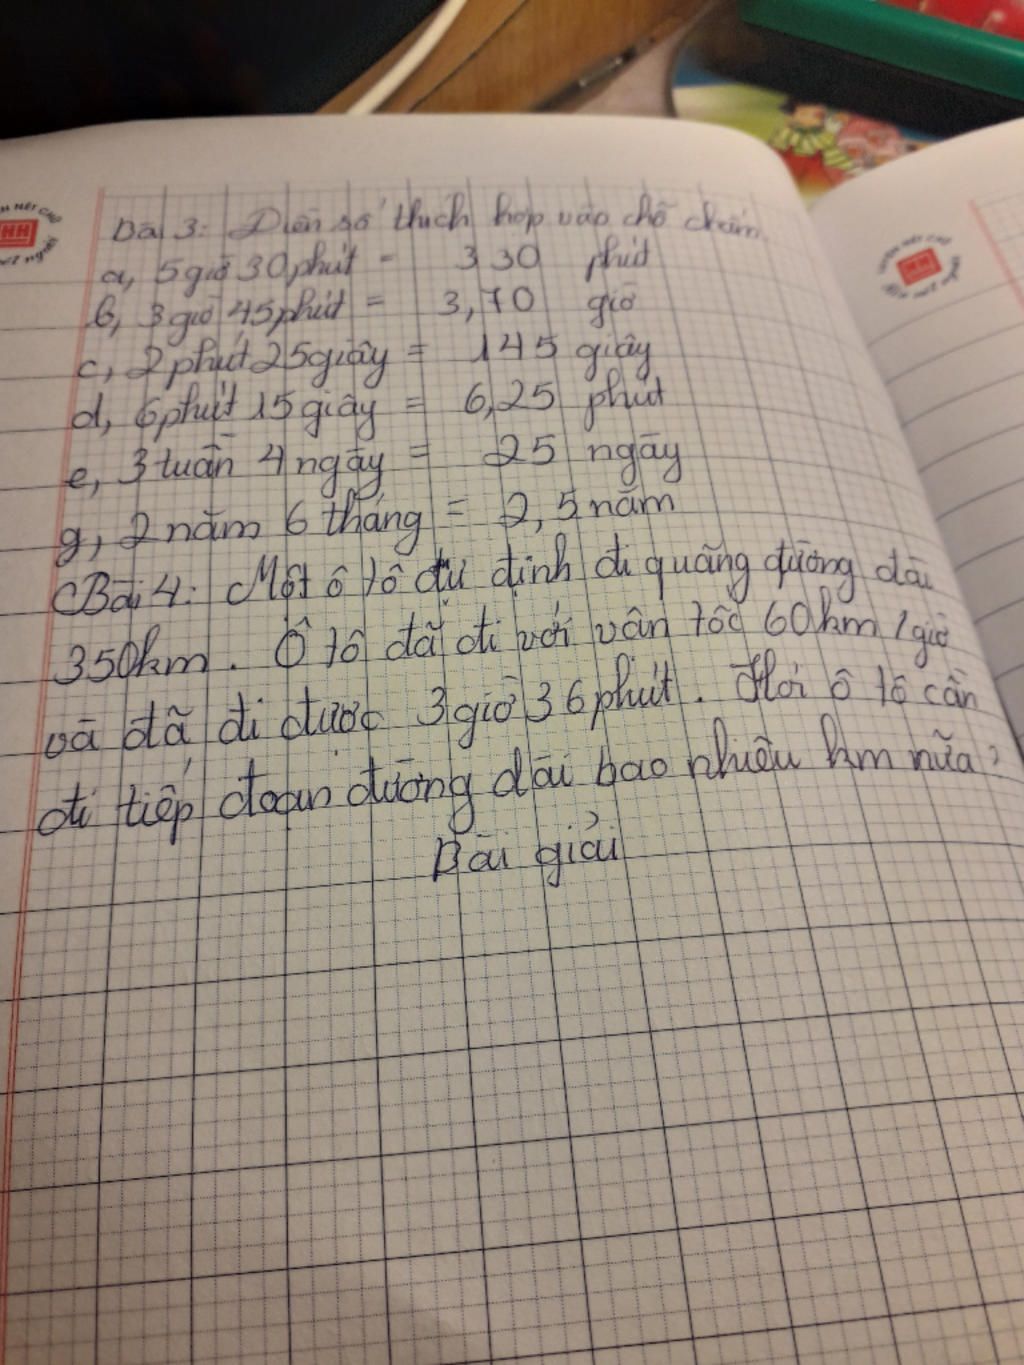 Bài 3: Điền số thích hợp vào chỗ chấm.
a, 5 giờ 30 phút = 330 phút
b, 3 giờ 45 phút = 3,70 giờ
c, 2 phút 25 giây = 145 giây
d, 6 phút 15 giây = 6,25 phút
e, 3 tuần 4 ngày = 25 ngày
g, 2 năm 6 tháng = 2,5 năm
Bài 4: Một ô tô dự định đi quãng đường dài
350km. Ô tô đã đi với vận tốc 60km/giờ
và đã đi được 3 giờ 36 phút. Hỏi ô tô cần
đi tiếp đoạn đường dài bao nhiêu km nữa?
Bài giải
NÉT CHỮ
HH
NẾT NGƯỜI
LUYỆN NÉT CHỮ
HH
RÈN NẾT NGƯỜI